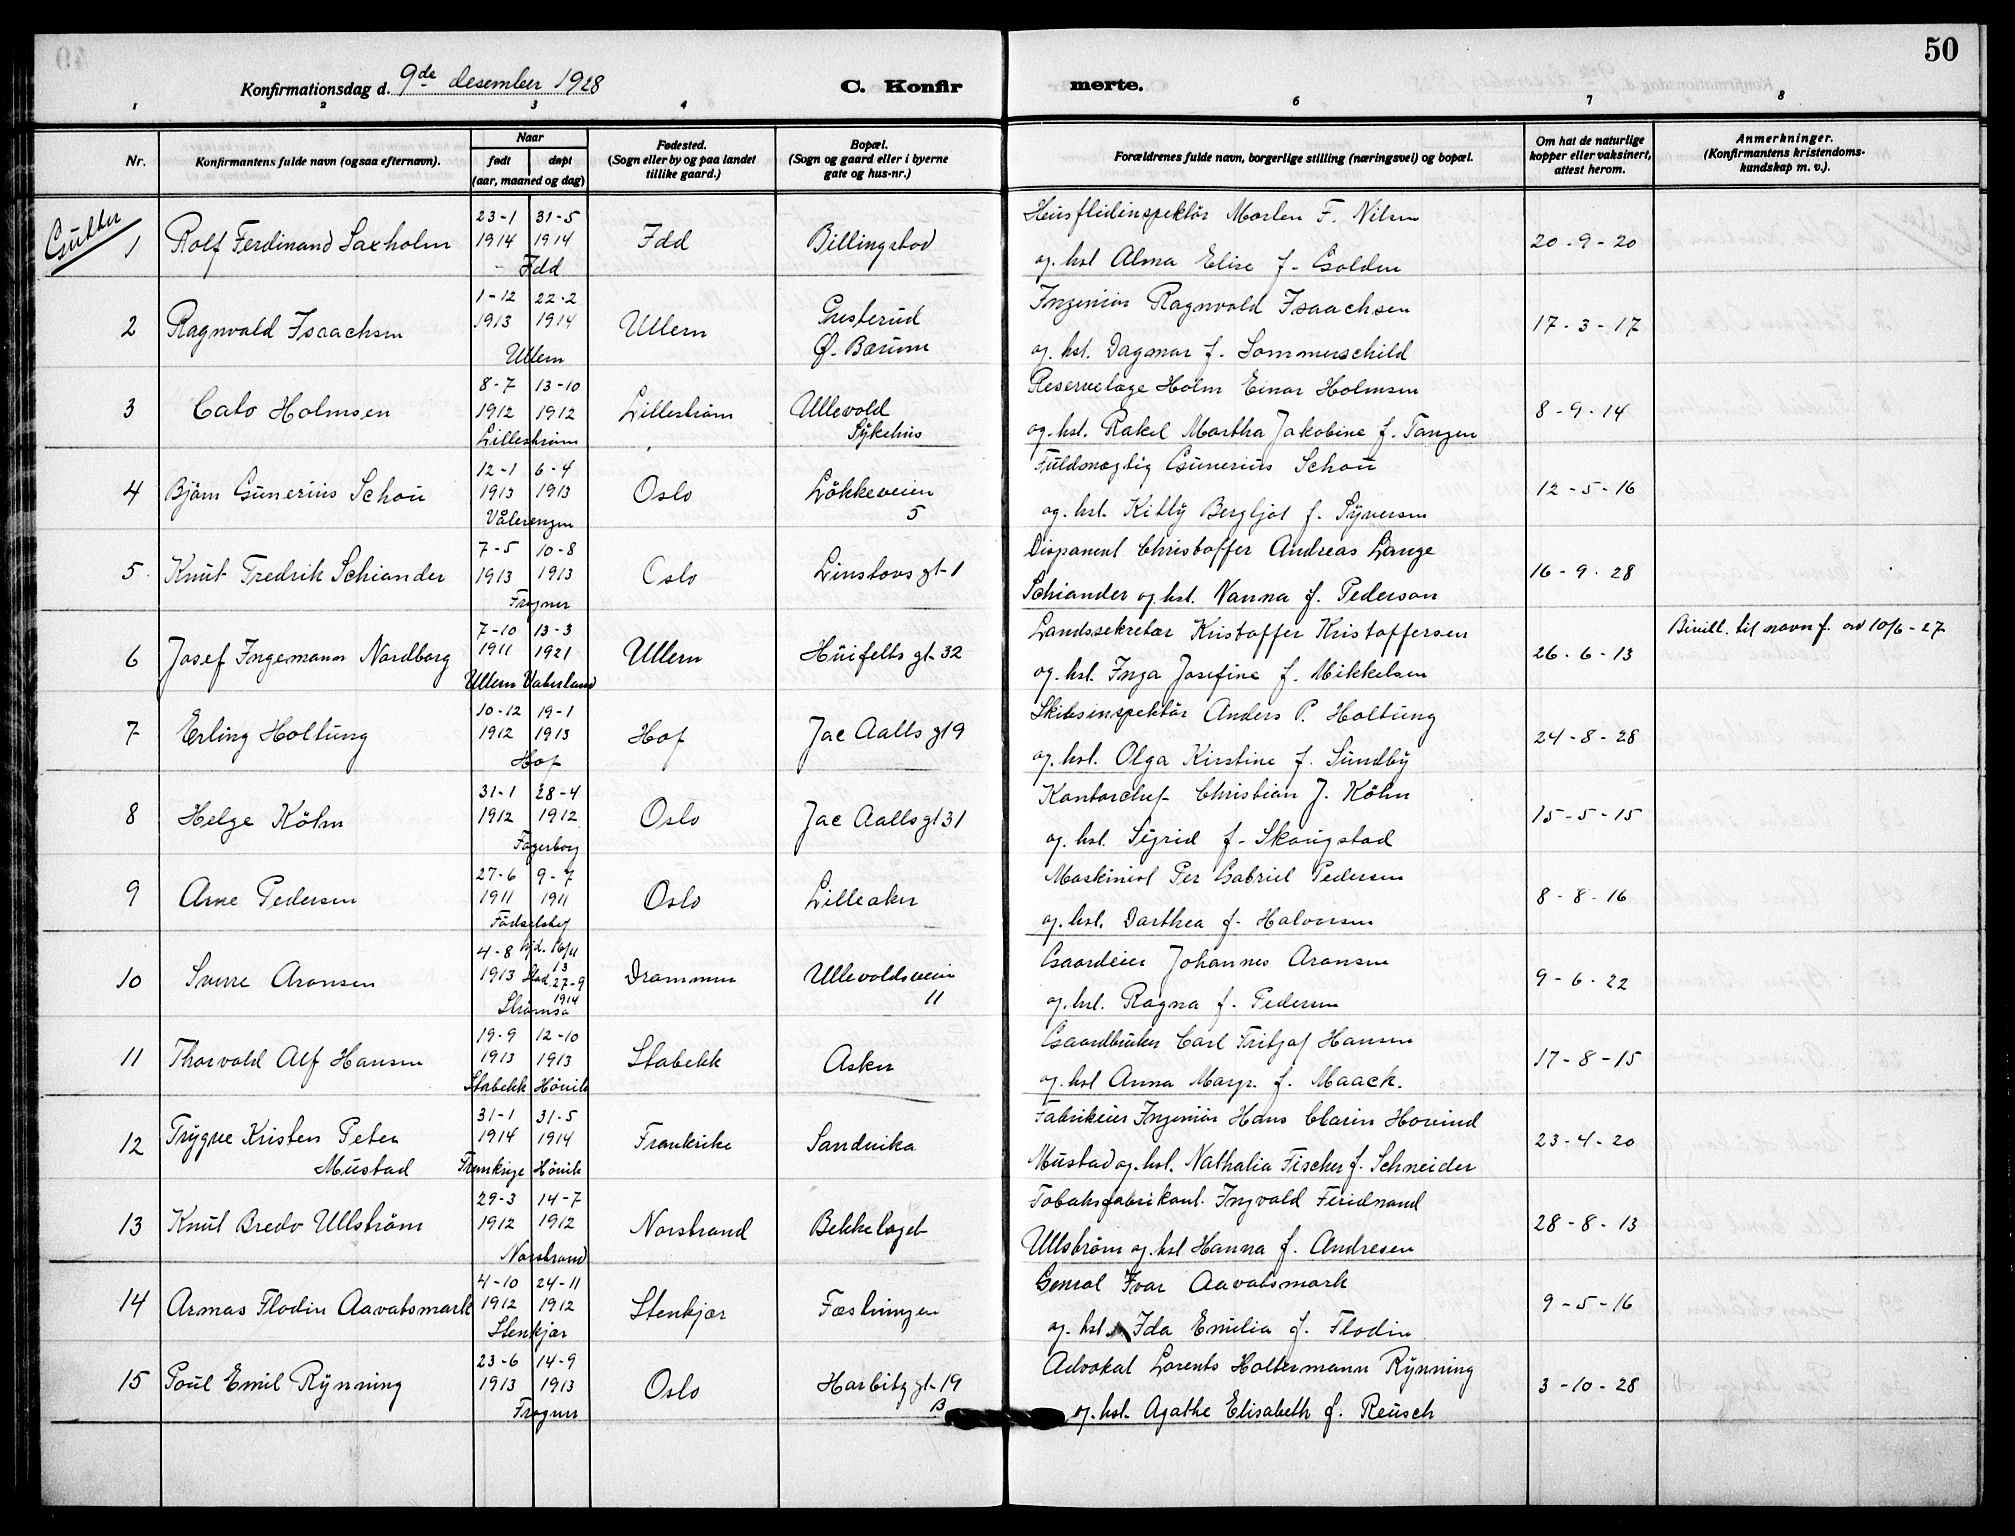 50
Konfirmationsdag d. 9de desember 1928
C. Konfirmerte.
1 2 3 4 6 7 8
Nr.
Konfirmantens fulde navn (ogsaa efternavn).
Naar
født døpt
(aar, maaned og dag)
Fødested.
(Sogn eller by og paa landet
tillike gaard.)
Bopæl.
(Sogn og gaard eller i byerne
gate og hus-nr.)
Forældrenes fulde navn, borgerlige stilling (næringsvei) og bopæl.
Om hat de naturlige
kopper eller vaksinert,
attest herom.
Anmerkninger.
(Konfirmantens kristendoms-
kundskap m. v.).
Gutter
1 Rolf Ferdinand Saxholm 23-1 1914 31-5 1914 Idd Idd Billingstad
Husflidinspektör Morten F. Nilsen
og hst Alma Elise f. Golden 20-9-20
2 Ragnvald Isaachsen 1-12 1913 22-2 1914 Ullern Ullern Gristerud Ø. Bærum
Ingeniör Ragnvald Isaachsen
og. hst. Dagmar f. Sommerschild 17-3-17
3 Cato Holmsen 8-7 1912 13-10 1912 Lilleström Lilleström Ullevold Sykehus
Reservelæge Holm Einar Holmsen
og. hst. Rakel Martha Jakobine f. Tangen 8-9-14
4 Björn Gunerius Schou 12-1 1913 6-4 1913 Vålerengen Oslo Lökkeveien 5
Fuldmægtig Gunerius Schou
og. hst. Kitty Bergljot f. Syversen 12-5-16
5 Knut Fredrik Schiander 7-5 1913 10-8 1913 Frogner Oslo Linstows gt. 1
Disponent Christoffer Andreas Lange
Schiander og. hst. Nanna f. Pederson 16-9-28
6 Josef Ingemann Nordborg 7-10 1911 13-3 1921 Ullern Vaterland Ullern Huifelts gt. 32
Landssekretær Kristoffer Kristoffersen
og. hst. Inga Josefine f. Mikkelsen 26-6-13
Bevill. til navnf. av 10/6-27
7 Erling Holtung 10-12 1912 19-1 1913 Hof Hof Jac Aalls gt 9
Skibsinspektör Anders P. Holtung
og. hst. Olga Kirstine f. Sundby 24-8-28
8 Helge Köhn 31-1 1912 28-4 1912 Fagerborg Oslo Jac Aalls gt 31
Kontorchef Christian J. Köhn
og. hst. Sigrid f. Skougstad 15-5-15
9 Arne Pedersen 27-6 1911 9-7 1911 Födselsstif Oslo Lilleaker
Maskinist Per Gabriel Pedersen
og. hst. Darthea f. Halvorsen 8-8-16
10 Sverre Aronsen 4-8 1913 hjd. 16/11 13 Stad. 27-9 1914 Strömsö Drammen Ullevoldsveien 11
Gaardeier Johannes Aronsen
og. hst. Ragna f. Pedersen 9-6-22
11 Thorvald Alf Hansen 19-9 1913 12-10 1913 Stabekk Hövik Stabekk Asker
Gaardbruker Carl Fritjof Hansen
og. hst Anna Margr. f. Maack. 17-8-15
12 Trygve Kristen Peter Mustad 31-1 1914 31-5 1914 Frankrige Hövik Frankrike Sandvika
Fabrikeier Ingeniör Hans Clarin Hovind
Mustad og. hst. Nathalia Fischer f. Schneider 23-4-20
13 Knut Bredo Ullström 29-3 1912 14-7 1912 Norstrand Norstrand Bekkelaget
Tobaksfabrikant. Ingvald Feridnand
Ullström og. hst Hanna f. Andresen 28-8-13
14 Armas Flodin Aavatsmark 4-10 1912 24-11 1912 Stenkjær Stenkjær Fæstningen
General Ivar Aavatsmark
og. hst. Ida Emilia f. Flodin 9-5-16
15 Poul Emil Rynning 23-6 1913 14-9 1913 Frogner Oslo Harbitz gt. 19 B
Advokat Lorents Holtermann Rynning
og. hst. Agathe Elisabeth f. Reusch 3-10-28